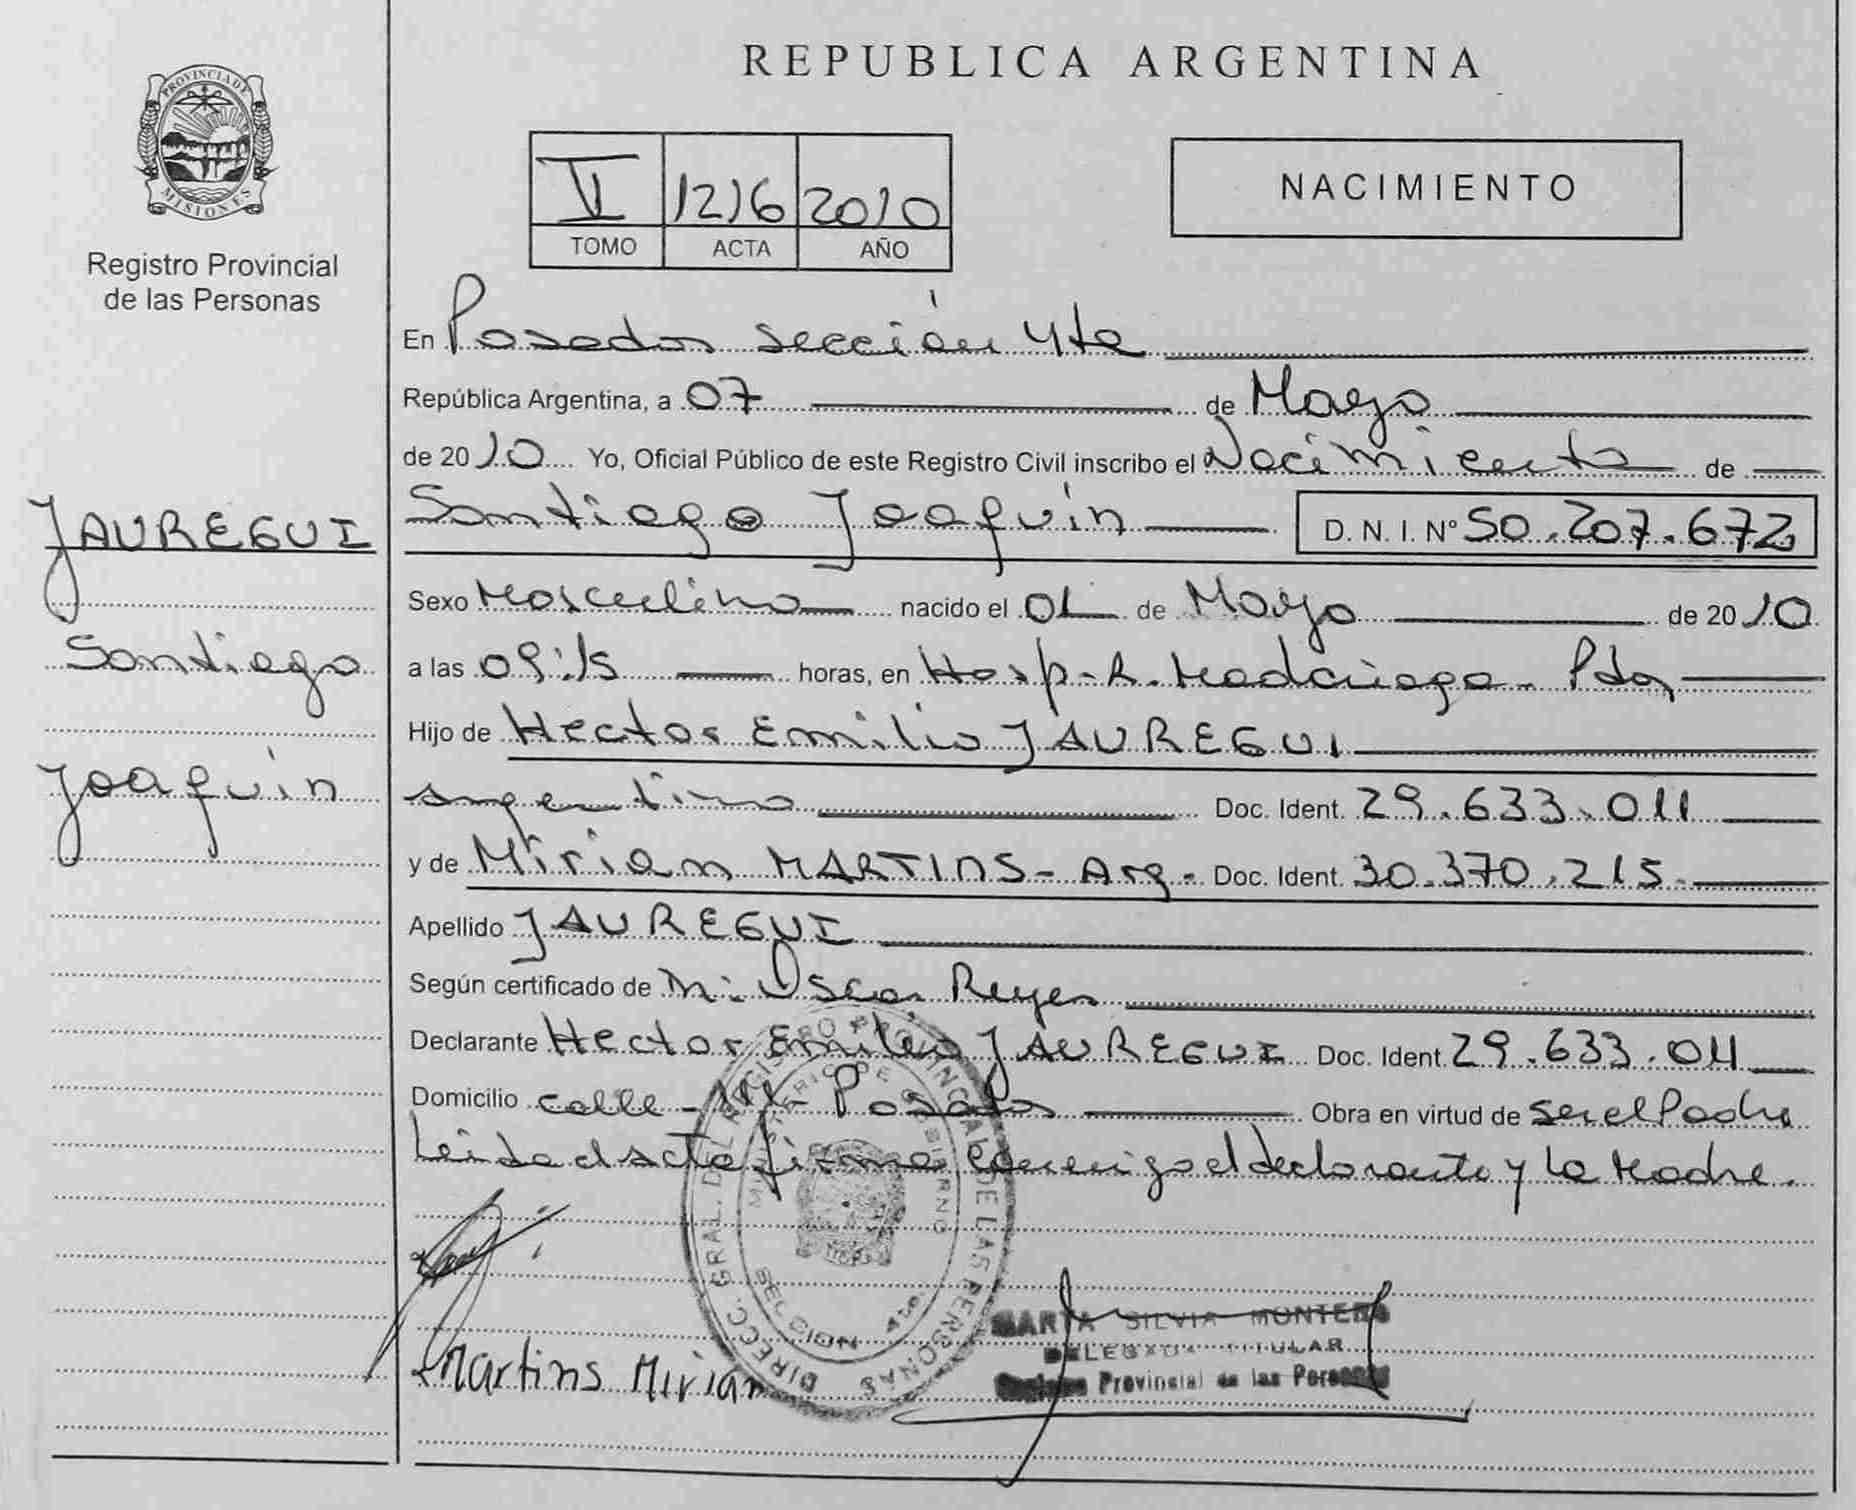 REPUBLICA ARGENTINA
PROVINCIA DE
MISIONES
Registro Provincial
de las Personas
VI 1216 2010
TOMO ACTA AÑO
NACIMIENTO
En Posadas sección 4ta
República Argentina, a 07 de Mayo
de 2010 Yo, Oficial Público de este Registro Civil inscribo el Nacimiento de
JAUREGUI
Santiago
Joaquín
Santiago Joaquín D. N. I. Nº 50.207.672
Sexo Masculino nacido el 01 de Mayo de 2010
a las 09:15 horas, en Hosp. R. Madariaga - Pdas
Hijo de Hector Emilio JAUREGUI
argentino Doc. Ident. 29.633.011
y de Miriam MARTINS - Arg. Doc. Ident. 30.370.215
Apellido JAUREGUI
Según certificado de M: Oscar Reyes
Declarante Hector Emilio JAUREGUI Doc. Ident. 29.633.011
Domicilio calle - Posadas Obra en virtud de ser el Padre
Leida el acta firma conmigo el declarante y la Madre.
DIRECC. GRAL. DEL REGISTRO PROVINCIAL DE LAS PERSONAS
MINISTERIO DE GOBIERNO
SECCION 4ta.
Martins Mirian
MARTA SILVIA MONTERO
DELEGADA TITULAR
Registro Provincial de las Personas